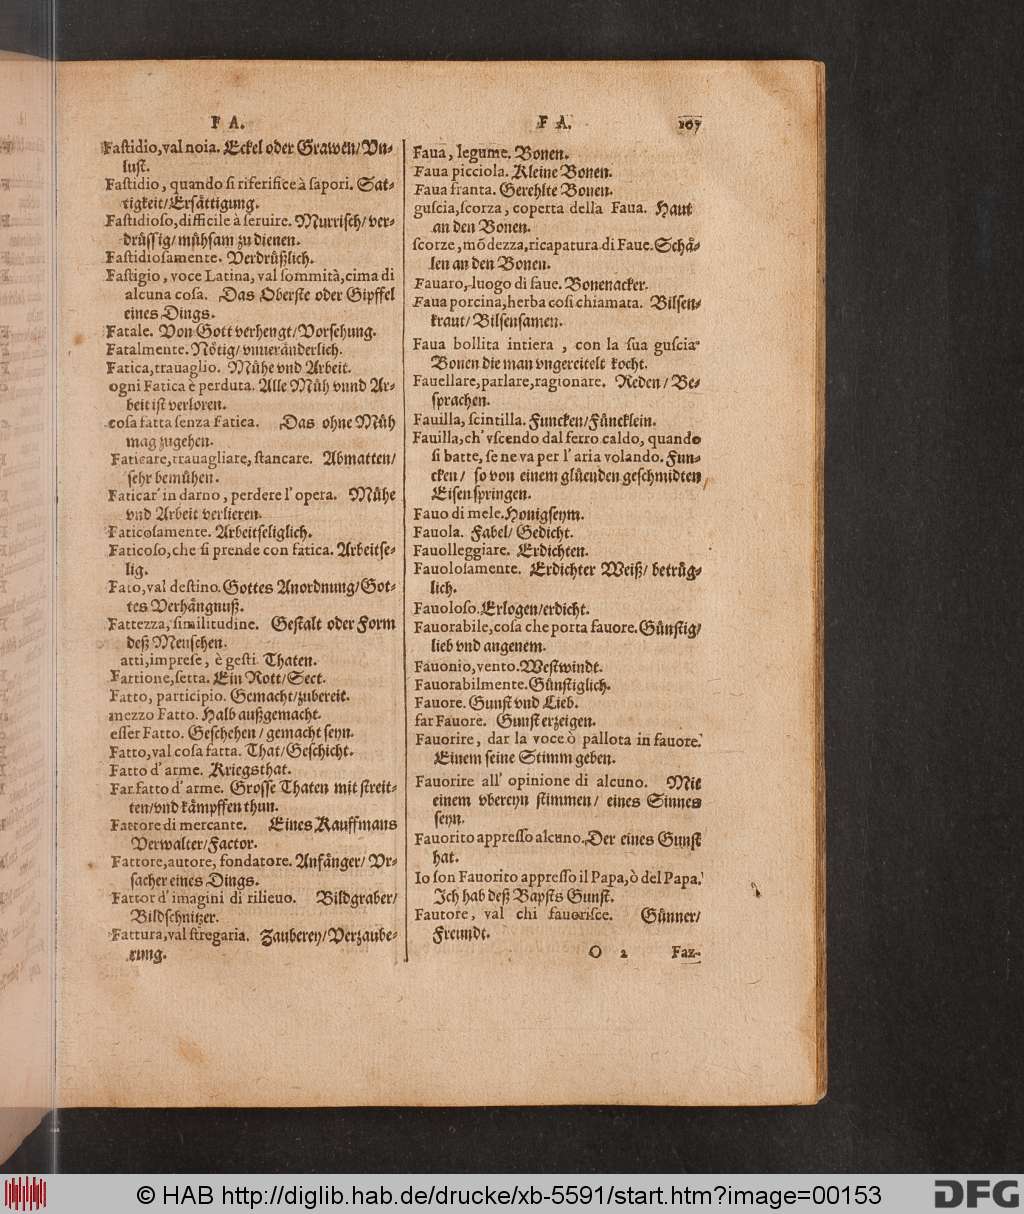 F A.
Fastidio, val noia. Eckel oder Grawen/ Vn-
lust.
Fastidio, quando si riferisice à sapori. Sat-
tigkeit/ Ersättigung.
Fastidioso, difficile à seruire. Murrisch/ ver-
drüssig/ mühsam zu dienen.
Fastidiosamente. Verdrüßlich.
Fastigio, voce Latina, val sommità, cima di
alcuna cosa. Das Oberste oder Gipffel
eines Dings.
Fatale. Von Gott verhengt/ Vorsehung.
Fatalmente. Nötig/ vnueränderlich.
Fatica, trauaglio. Mühe vnd Arbeit.
ogni Fatica è perduta. Alle Müh vnnd Ar-
beit ist verloren.
cosa fatta senza Fatica. Das ohne Müh
mag zugehen.
Faticare, trauagliare, stancare. Abmatten/
sehr bemühen.
Faticar' in darno, perdere l' opera. Mühe
vnd Arbeit verlieren.
Faticosamente. Arbeitseliglich.
Faticoso, che si prende con fatica. Arbeitse-
lig.
Fato, val destino. Gottes Anordnung/ Got-
tes Verhängnuß.
Fattezza, similitudine. Gestalt oder Form
deß Menschen.
atti, imprese, è gesti Thaten.
Fattione, setta. Ein Rott/ Sect.
Fatto, participio. Gemacht/ zubereit.
mezzo Fatto. Halb außgemacht.
esser Fatto. Geschehen/ gemacht seyn.
Fatto, val cosa fatta. That/ Geschicht.
Fatto d' arme. Kriegsthat.
Far fatto d' arme. Grosse Thaten mit streit-
ten/ vnd kämpffen thun.
Fattore di mercante. Eines Kauffmans
Verwalter/ Factor.
Fattore, autore, fondatore. Anfänger/ Vr-
sacher eines Dings.
Fattor d' imagini di rilieuo. Bildgraber/
Bildschnitzer.
Fattura, val stregaria. Zauberey/ Verzaube-
rung.
F A. 107
Faua, legume. Bonen.
Faua picciola. Kleine Bonen.
Faua franta. Gerehlte Bonen.
guscia, scorza, coperta della Faua. Haut
an den Bonen.
scorze, mõdezza, ricapatura di Faue. Schä-
len an den Bonen.
Fauaro, luogo di faue. Bonenacker.
Faua porcina, herba cosi chiamata. Bilsen-
kraut/ Bilsensamen.
Faua bollita intiera, con la sua guscia
Bonen die man vngereitelt kocht.
Fauellare, parlare, ragionare. Reden/ Be-
sprachen.
Fauilla, scintilla. Funcken/ Füncklein.
Fauilla, ch' vscendo dal ferro caldo, quando
si batte, se ne va per l' aria volando. Fun-
cken/ so von einem glüenden geschmidten
Eisen springen.
Fauo di mele. Honigseym.
Fauola. Fabel/ Gedicht.
Fauolleggiare. Erdichten.
Fauolosamente. Erdichter Weiß/ betrüg-
lich.
Fauoloso. Erlogen/ erdicht.
Fauorabile, cosa che porta fauore. Günstig/
lieb vnd angenem.
Fauonio, vento. Westwindt.
Fauorabilmente. Günstiglich.
Fauore. Gunst vnd Lieb.
far Fauore. Gunst erzeigen.
Fauorire, dar la voce ò pallota in fauore.
Einem seine Stimm geben.
Fauorire all' opinione di alcuno. Mit
einem vbereyn stimmen/ eines Sinnes
seyn.
Fauorito appresso alcuno. Der eines Gunst
hat.
Io son Fauorito appresso il Papa, ò del Papa.
Ich hab deß Bapsts Gunst.
Fautore, val chi fauorisce. Günner/
Freundt.
O 2 Faz-
© HAB http://diglib.hab.de/drucke/xb-5591/start.htm?image=00153
DFG